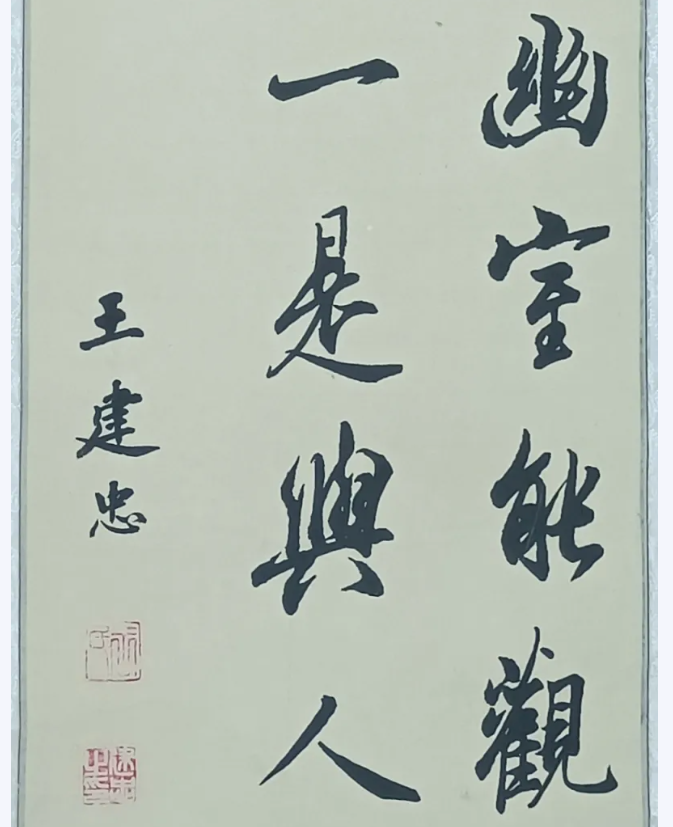 幽室能觀
一是與人
王建忠